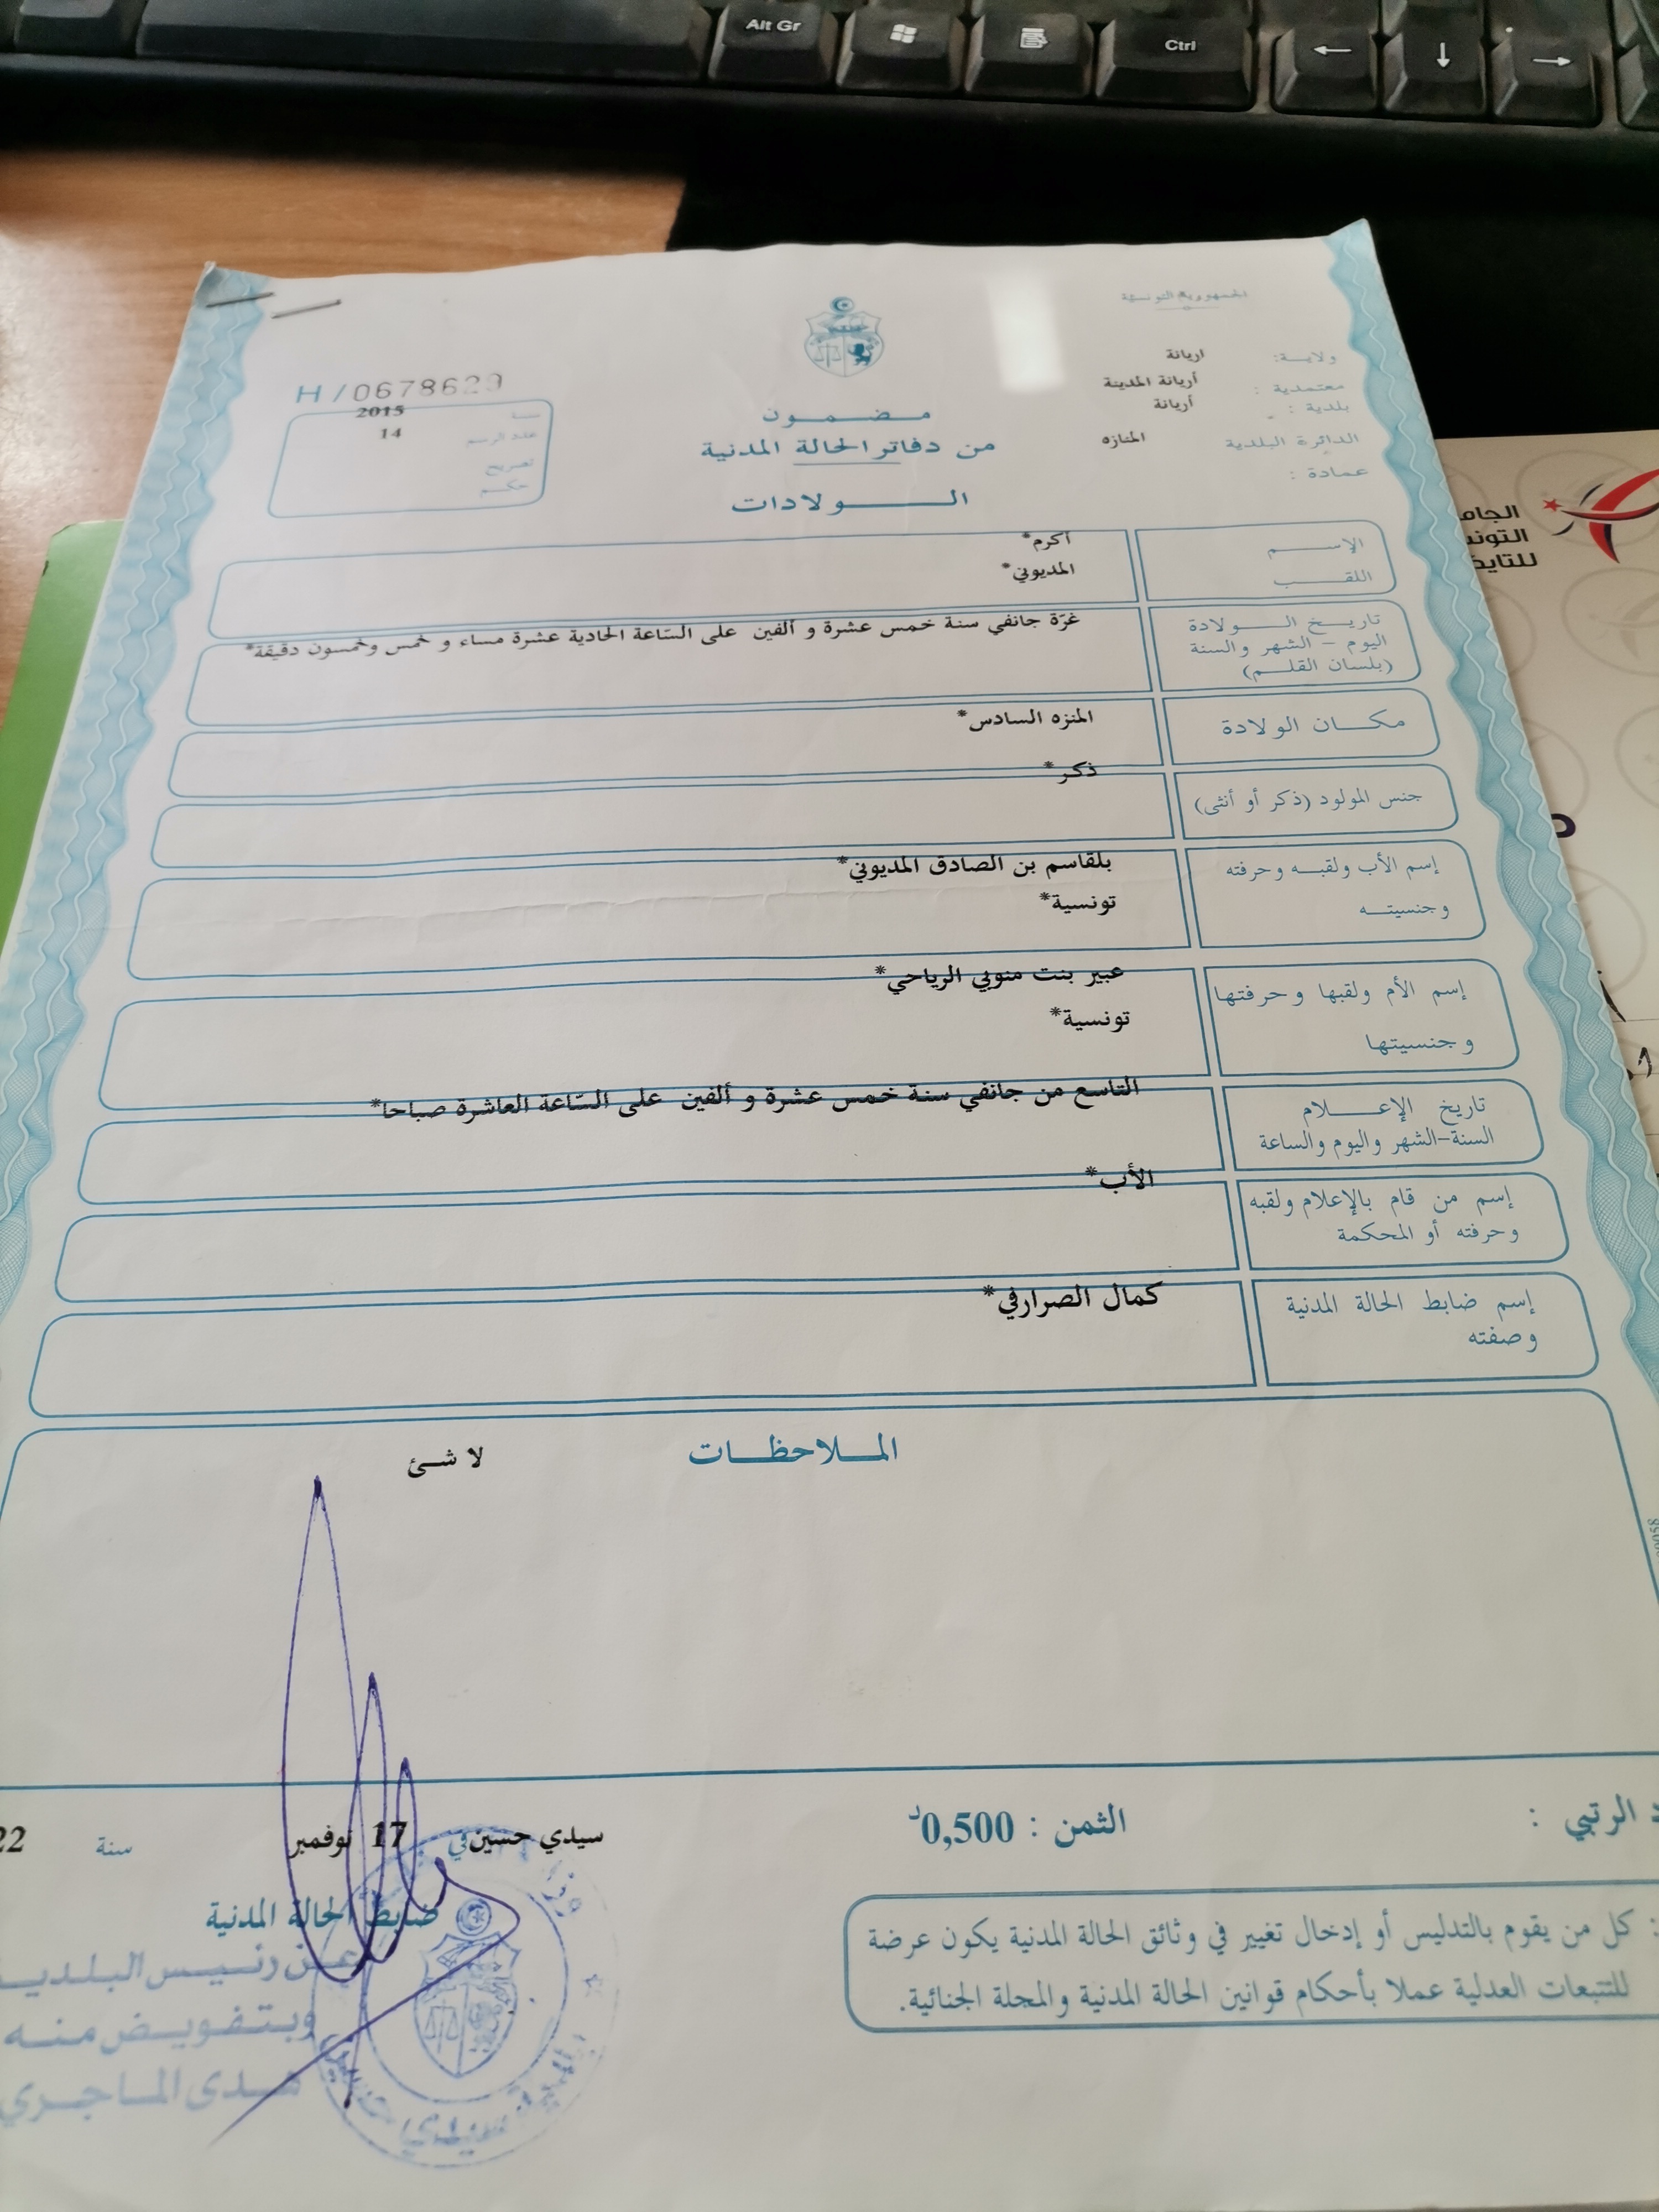 Alt Gr
Ctrl
الجمهورية التونسية
ولاية: اريانة
معتمدية : أريانة المدينة
بلدية : أريانة
الدائرة البلدية المنازه
عمادة :
مضمون
من دفاتر الحالة المدنية
الولادات
H/0678629
سنة 2015
عدد الرسم 14
تصريح
حكم
الإسم أكرم*
اللقب المديوني*
تاريخ الولادة
اليوم - الشهر والسنة
(بلسان القلم)
غرّة جانفي سنة خمس عشرة و ألفين على السّاعة الحادية عشرة مساء و خمس وخمسون دقيقة*
مكان الولادة المنزه السادس*
جنس المولود (ذكر أو أنثى) ذكر*
إسم الأب ولقبه وحرفته بلقاسم بن الصادق المديوني*
وجنسيته تونسية*
إسم الأم ولقبها وحرفتها عبير بنت منوبي الرياحي*
وجنسيتها تونسية*
تاريخ الإعلام
السنة-الشهر واليوم والساعة
التاسع من جانفي سنة خمس عشرة و ألفين على السّاعة العاشرة صباحا*
إسم من قام بالإعلام ولقبه
وحرفته أو المحكمة
الأب*
إسم ضابط الحالة المدنية
وصفته
كمال الصرارفي*
الملاحظات
لا شئ
الرتبي :
الثمن : 0,500د
سيدي حسين في 17 نوفمبر سنة 22
ضابط الحالة المدنية
عن رئيس البلدية
وبتفويض منه
هدى الماجري
: كل من يقوم بالتدليس أو إدخال تغيير في وثائق الحالة المدنية يكون عرضة
للتتبعات العدلية عملا بأحكام قوانين الحالة المدنية والمجلة الجنائية.
الجام
التون
للتايك